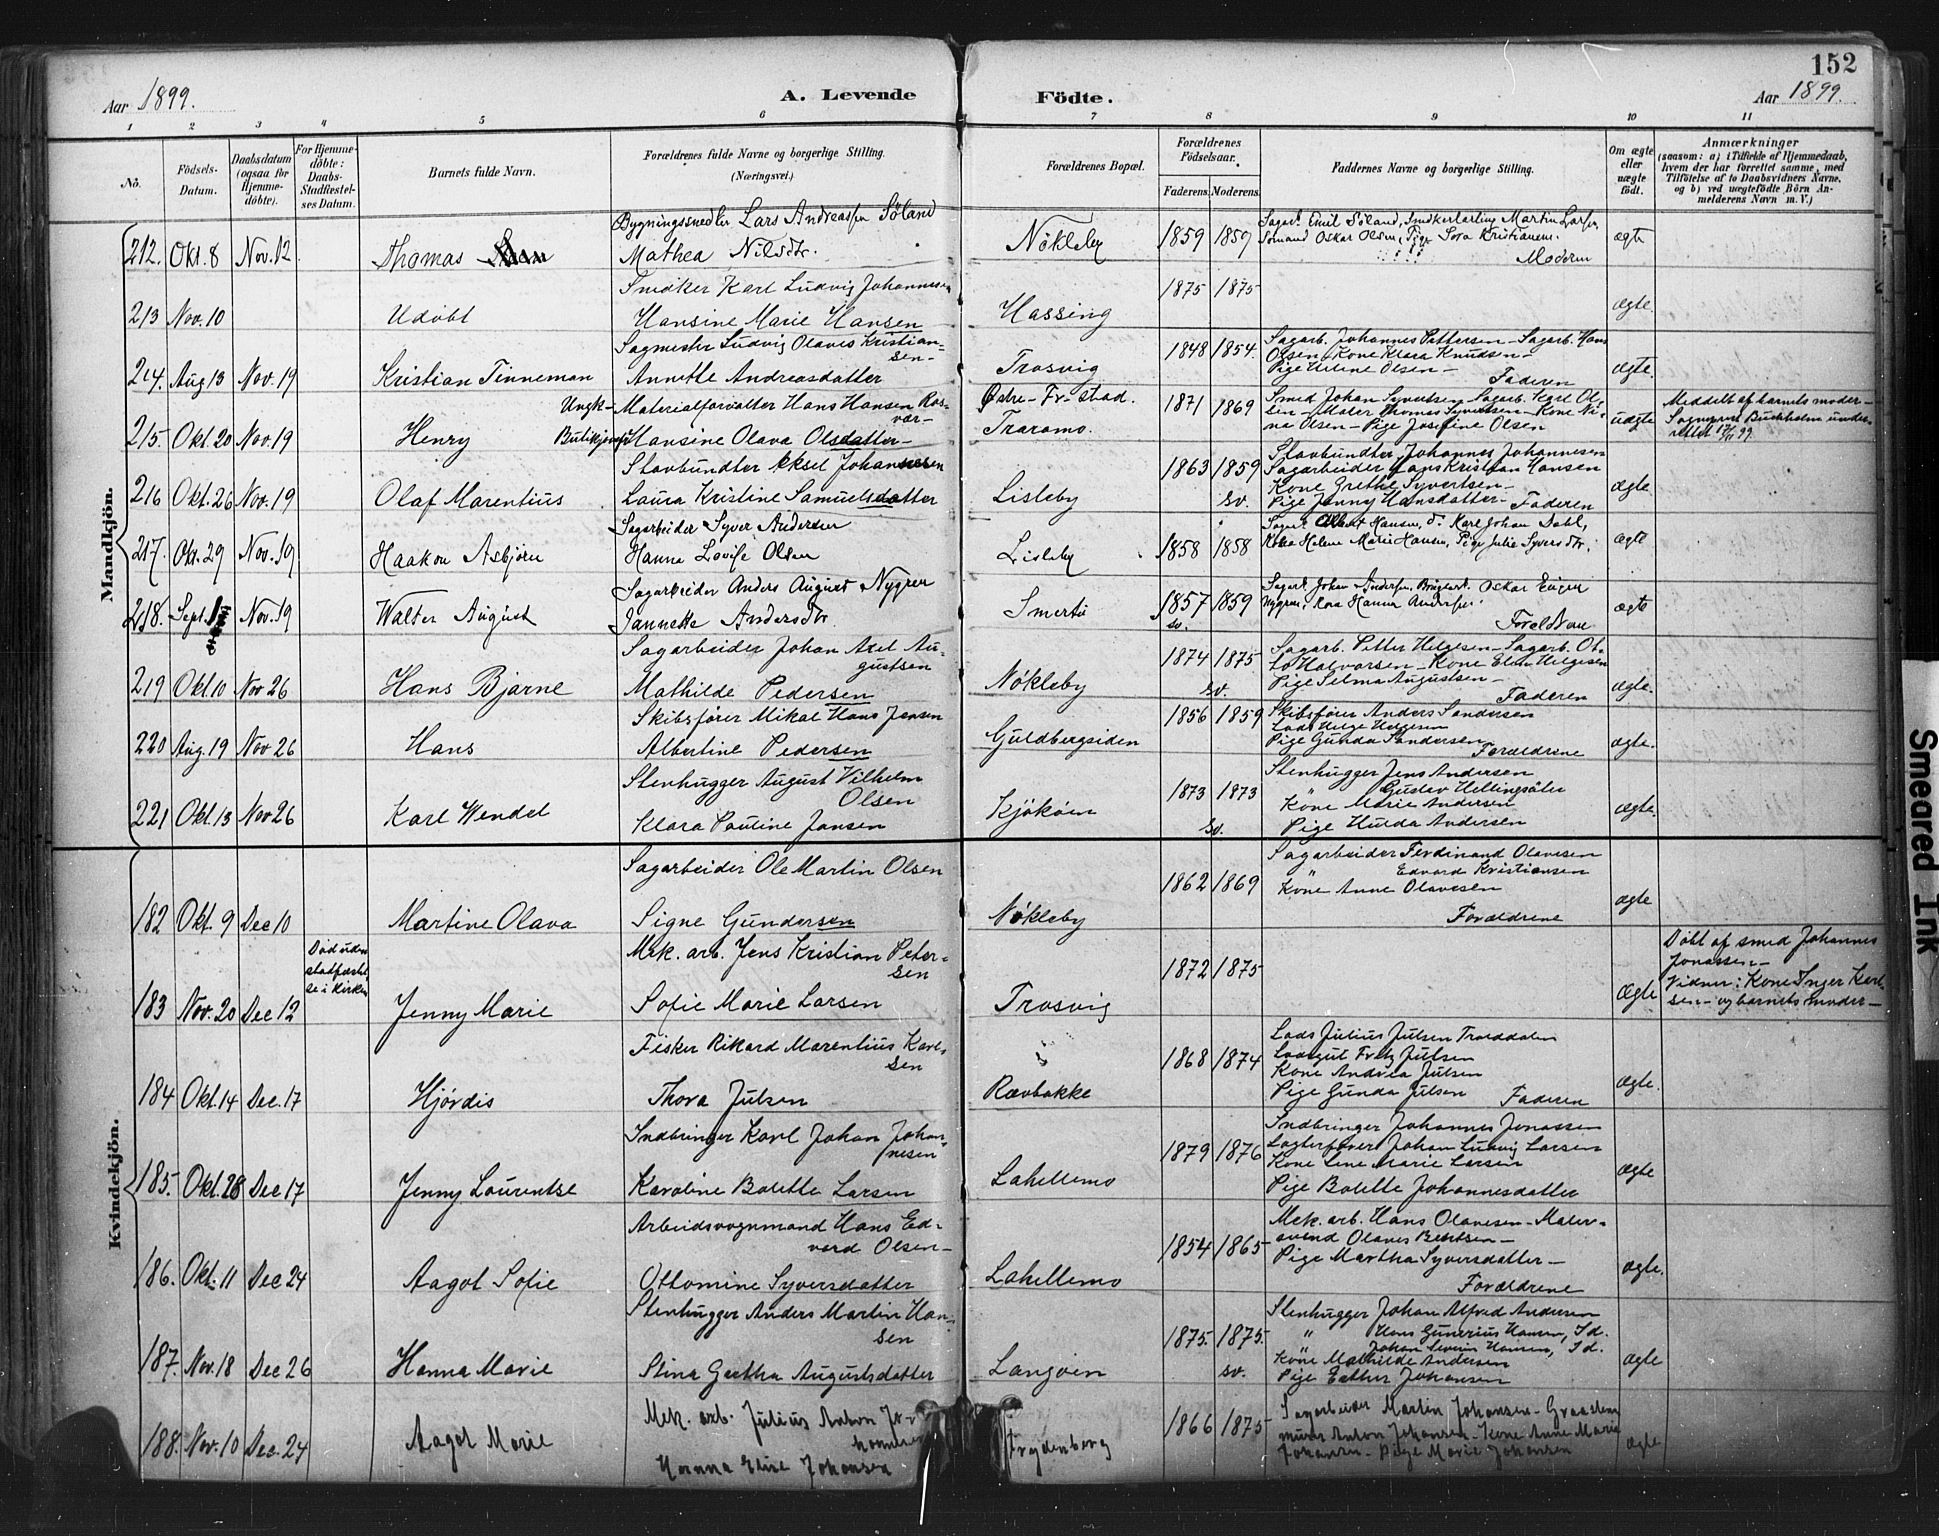 152
Aar 1899.
A. Levende Födte.
Aar 1899.
1 2 3 4 5 6 7 8 9 10 11
No.
Födsels-Datum.
Daabsdatum (ogsaa for Hjemme-döbte).
For Hjemme-döbte: Daabs-Stadfæstel-ses Datum.
Barnets fulde Navn.
Forældrenes fulde Navne og borgerlige Stilling.
(Næringsvei.)
Forældrenes Bopæl.
Forældrenes Födselsaar.
Faderens. Moderens.
Faddernes Navne og borgerlige Stilling.
Om ægte eller uægte födt.
Anmærkninger
(saasom: a) i Tilfælde af Hjemmedaab,
hvem der har forrettet samme, med
Tilföielse af to Daabsvidners Navne,
og b) ved uægtefödte Börn An-
melderens Navn m. V.)
Mandkjön.
212. Okt. 8 Nov. 12 Thomas
Bygningssnedker Lars Andreassen Søland
Mathea Nilsdtr.
Nökleby 1859 1859
Sagarb. Emil Søland, Snedkerlærling Martin Larsen,
Sömand Oskar Olsen, Pige Sora Kristiansen.
Moderen
ægte
213 Nov. 10 Udöbt
Snedker Karl Ludvig Johannesen
Hansine Marie Hansen
Hassing 1875 1875 ægte.
214. Aug 13 Nov. 19 Kristian Tinneman
Sagmester Ludvig Olaves Kristian-
sen-
Annette Andreasdatter
Trosvig 1848 1854.
Sagarb. Johannes Pettersen - Sagarb. Hans
Olsen - Kone Klara Knudsen -
Pige Helene Olsen -
Faderen
ægte.
215. Okt. 20 Nov. 19 Henry
Ungk- Materialforvalter Hans Hansen Ros-
vær-
Butikjomfr Hansine Olava Olsdatter -
Østre - Fr-stad.
Traramo.
1871 1869
Smed Johan Syvertsen - Sagarb. Karl Ol-
sen - Maler Thomas Syvertsen - Kone Ni-
na Olsen - Pige Josefine Olsen
uægte
Meddelt af barnets moder -
Sogneprest Buckholm under-
rettet 17/11 99.
216 Okt. 26 Nov. 19 Olaf Marentius
Stavbundter Aksel Johannesen
Laura Kristine Samuelsdatter
Lisleby 1863 1859
sv.
Stavbundter Johannes Johannesen
Sagarbeider Hans Kristian Hansen
Kone Grethe Syvertsen -
Pige Jenny Hansdatter - Faderen
ægte
217. Okt. 29 Nov. 19 Haakon Asbjörn
Sagarbeider Syver Andersen
Hanna Lovise Olsen
Lisleby 1858 1858
Sagarb. Albert Hansen, d. Karl Johan Dahl,
Kone Helene Marie Hansen, Pige Julie Syversdtr.
ægte
218. Sept. Nov. 19 Walter August
Sagarbeider Anders August Nygren
Jannette Andersdtr.
Smertu 1857 1859
sv.
Sagarb. Johan Andersen, Oskar Eugen
Nygren, Kone Hanna Andersen.
Foreldrene
ægte
219 Okt 10 Nov 26 Hans Bjarne
Sagarbeider Johan Axel Au-
gustsen
Mathilde Pedersen
Nökleby 1874 1875
sv.
Sagarb. Petter Helgesen - Sagarb. Ot-
to Halvorsen - Kone Elen Helgesen
Pige Selma Augustsen -
Faderen
ægte.
220 Aug. 19 Nov 26 Hans
Skibsfører Mikal Hans Jensen
Albertine Pedersen
Guldbergsiden 1856 1859
Skibsfører Anders Sandersen
Lods Helge Helgesen
Pige Gunda Sandersen
Forældrene
ægte.
221 Okt. 13 Nov 26 Karl Wendel
Stenhugger August Vilhelm
Olsen
Klara Pauline Jansen
Kjököen 1873 1873
sv.
Stenhugger Jens Andersen
" Gustav Hellingsäter
Kone Marie Andersen
Pige Hulda Andersen
ægte.
Kvindekjön.
182 Okt. 9 Dec 10 Martine Olava
Sagarbeider Ole Martin Olsen
Signe Gundersen
Nökleby 1862 1869
Sagarbeider Ferdinand Olavesen
" Edvard Kristiansen
Kone Anne Olavesen
Forældrene
ægte
183 Nov. 20 Dec 12
Död uden
stadfæstel
se i kirken
Jenny Marie
Mek. arb. Jens Kristian Peter-
sen
Sofie Marie Larsen
Trosvig 1872 1875
Ægte
Döbt af smed Johannes
Jonassen -
Vidner: Kone Inger Karl-
sen - og barnets moder -
184 Okt. 14 Dec. 17 Hjördis
Fisker Rikard Marentius Karl-
sen
Thora Julsen
Rævbakke 1868 1874
Lods Julius Julsen Træddalen
Lodsgut Fritz Julsen
Kone Andrea Julsen
Pige Gunda Julsen Faderen
ægte.
185. Okt. 28 Dec 17 Jenny Lourentse
Indbringer Karl Johan Johan-
nesen
Karoline Bolette Larsen
Lahellemo 1879 1876
Indbringer Johannes Jonassen
Johan Ludvig Larsen
Kone Lene Marie Larsen
Pige Bolette Johannesdatter
ægte
186. Okt. 11 Dec 24 Aagot Sofie
Arbeidsvognmand Hans Ed-
vard Olsen -
Ottomine Syversdatter
Lahellemo 1854 1865
Mek. arb. Hans Olavesen - Maler-
svend Olaves Bentsen -
Pige Martha Syversdatter -
Forældrene
ægte.
187. Nov. 18 Dec 26 Hanna Marie
Stenhugger Anders Martin Han-
sen
Stina Gretha Augustsdatter
Langöien 1875. 1875.
sv.
Stenhugger Johan Alfred Andersen
" Hans Gunerius Hansen, Id.
Johan Severin Hansen, Id.
Kone Mathilde Andersen
Pige Esther Johansen
ægte
188. Nov. 10 Dec. 24 Aagot Marie
Mek. arb. Julius Anton Jo-
hannesen
Hanna Elise Johansen
Frydenberg 1866 1875
Sagarbeider Martin Johansen - Graastens
murer Anton Johansen - Kone Anne Marie
Johansen - Pige Marie Johansen
ægte
Smeared Ink